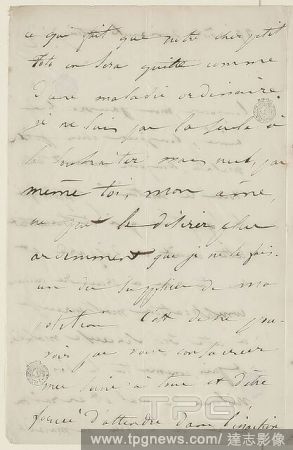 ce qui fait que notre cher petit
toto en sera quitte comme
d'une maladie ordinaire.
je ne suis pas la seule à
le souhaiter, mais nul, pas
même toi, mon âme,
ne peut le désirer plus
ardemment que je ne le fais.
un des supplices de ma
position c'est de ne pou-
voir pas vous consacrer
mes soins à tous et d'être
forcée d'attendre dans l'inaction
TPG
www.tpgnews.com/ 達志影像